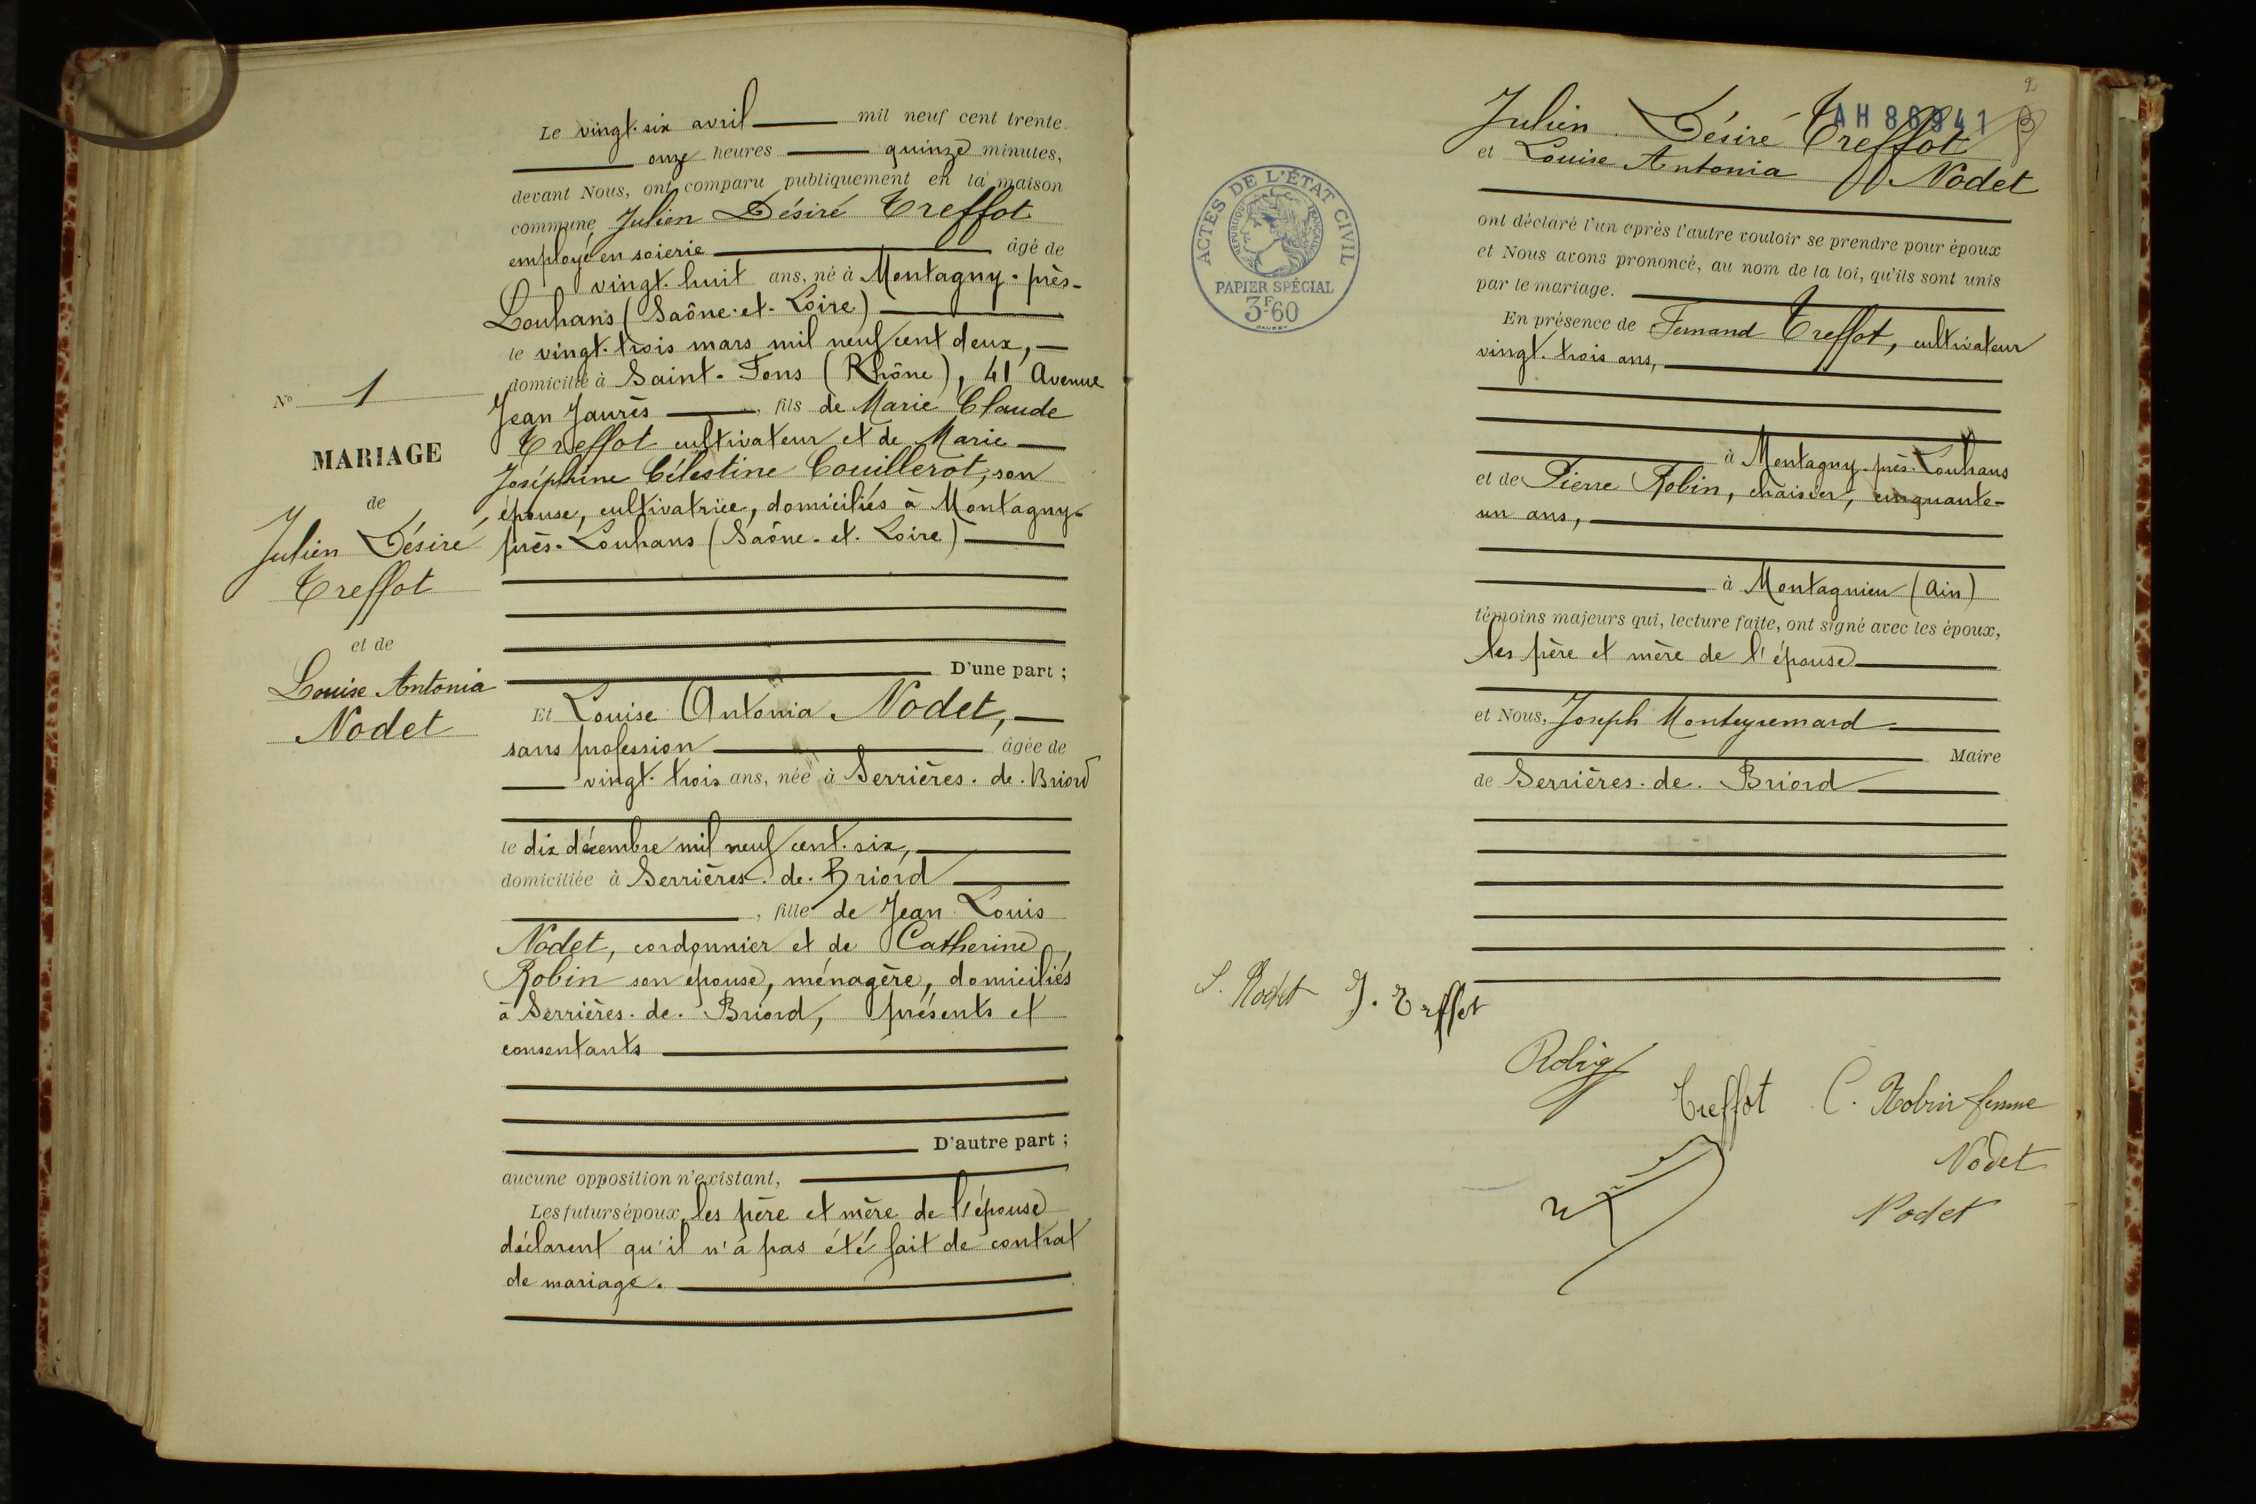 Le vingt-six avril mil neuf cent trente
onze heures quinze minutes,
devant Nous, ont comparu publiquement en la maison
commune Julien Désiré Treffot
employé en soierie âgé de
vingt-huit ans, né à Montagny-près-
Louhans (Saône-et-Loire)
le vingt-trois mars mil neuf cent deux,
domicilié à Saint-Fons (Rhône), 41 Avenue
Jean Jaurès, fils de Marie Claude
Treffot cultivateur et de Marie
Joséphine Célestine Couillerot, son
épouse, cultivatrice, domiciliés à Montagny-
près-Louhans (Saône-et-Loire)
D'une part ;
Et Louise Antonia Nodet,
sans profession âgée de
vingt-trois ans, née à Serrières-de-Briord
le dix décembre mil neuf cent six,
domiciliée à Serrières-de-Briord
, fille de Jean Louis
Nodet, cordonnier et de Catherine
Robin son épouse, ménagère, domiciliés
à Serrières-de-Briord, présents et
consentants
D'autre part ;
aucune opposition n'existant,
Les futurs époux, les père et mère de l'épouse
déclarent qu'il n'a pas été fait de contrat
de mariage.
No 1
MARIAGE
de
Julien Désiré
Treffot
et de
Louise Antonia
Nodet
ACTES DE L'ÉTAT CIVIL
RÉPUBLIQUE FRANÇAISE
PAPIER SPÉCIAL
3F60
2
AH 86941
Julien Désiré Treffot
et Louise Antonia Nodet
ont déclaré l'un après l'autre vouloir se prendre pour époux
et Nous avons prononcé, au nom de la loi, qu'ils sont unis
par le mariage.
En présence de Fernand Treffot, cultivateur
vingt-trois ans,
à Montagny-près-Louhans
et de Pierre Robin, chaisier, cinquante-
un ans,
à Montagnieu (Ain)
témoins majeurs qui, lecture faite, ont signé avec les époux,
les père et mère de l'épouse
et Nous, Joseph Monteyremard
Maire
de Serrières-de-Briord
L. Nodet J. Treffot
Robin
Treffot C. Robin femme
Nodet
Nodet